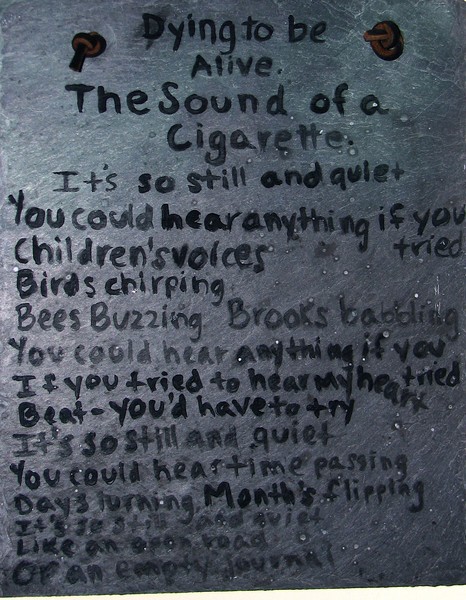 Dying to be
Alive.
The Sound of a
Cigarette.
It's so still and quiet
You could hear anything if you
tried
Children's voices
Birds chirping
Bees Buzzing Brooks babbling
You could hear anything if you
tried
If you tried to hear my heart
Beat - you'd have to try
It's so still and quiet
You could hear time passing
Days turning Month's flipping
It's so still and quiet
Like an open road
Or an empty journal